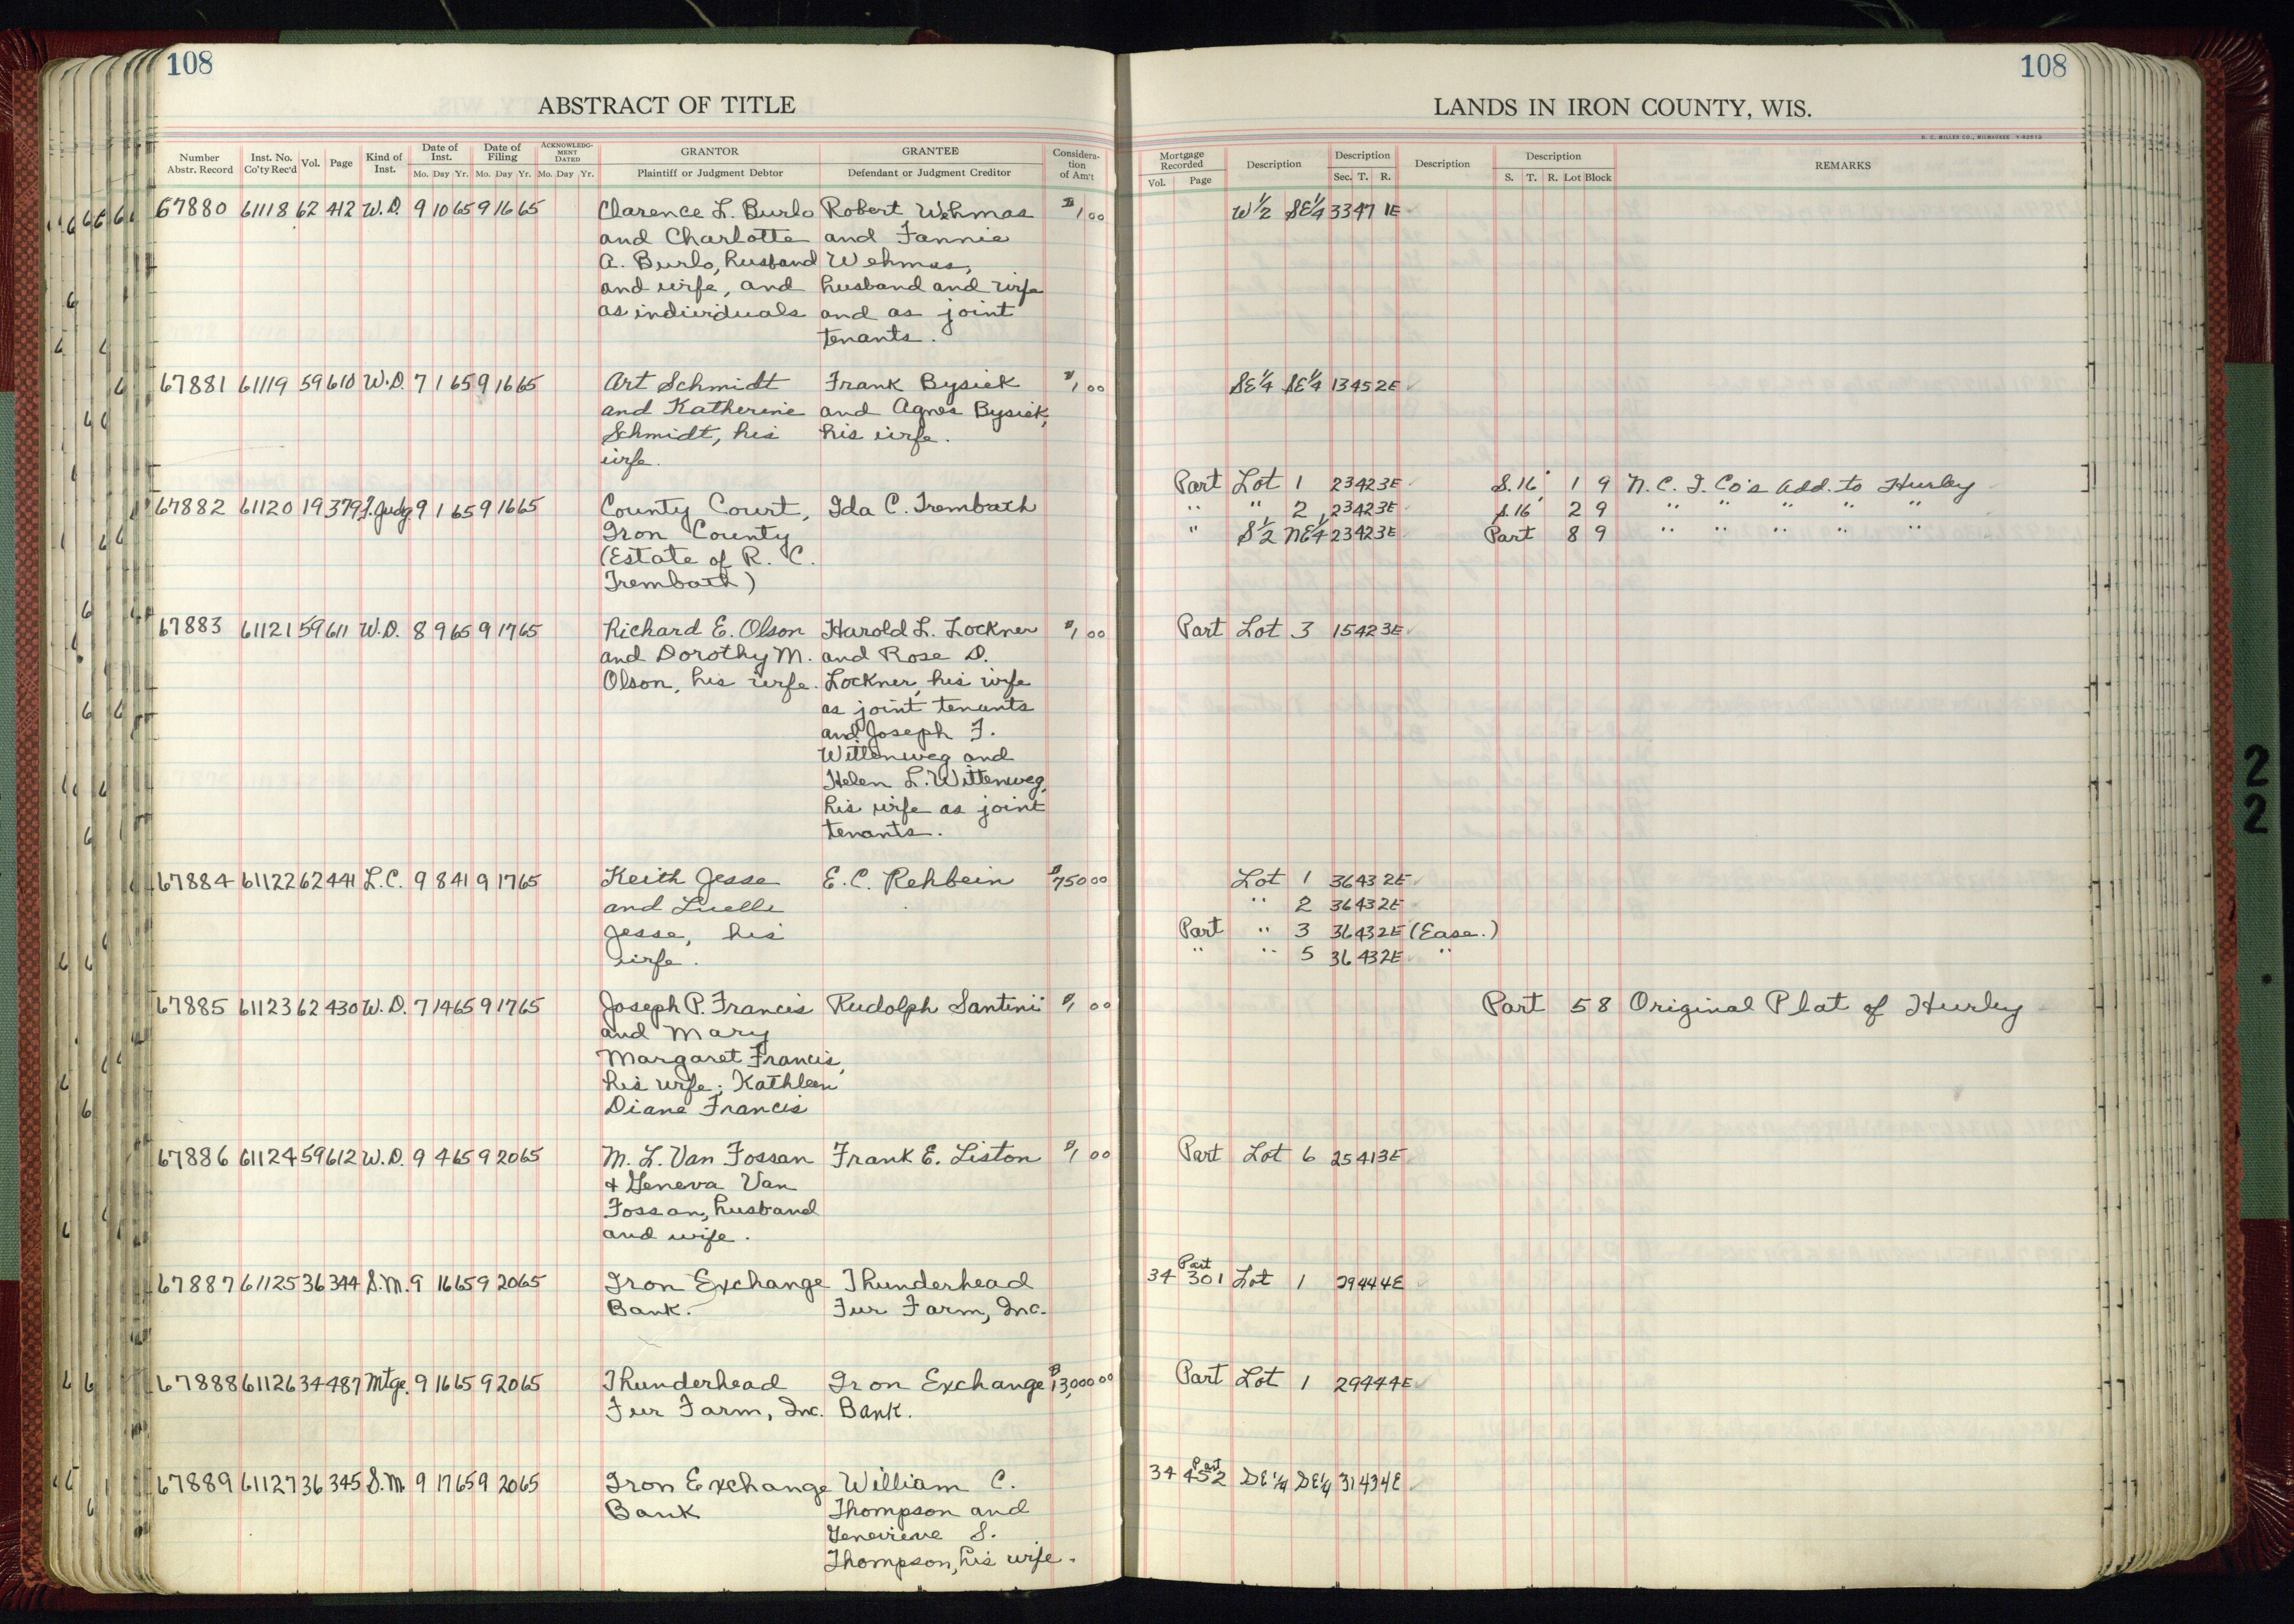 108
108
ABSTRACT OF TITLE
LANDS IN IRON COUNTY, WIS.
Number Abstr. Record Inst. No. Co'ty Rec'd Vol. Page Kind of Inst. Date of Inst. Mo. Day Yr. Date of Filing Mo. Day Yr. ACKNOWLEDGMENT DATED Mo. Day Yr. GRANTOR Plaintiff or Judgment Debtor GRANTEE Defendant or Judgment Creditor Consideration of Am't
Mortgage Recorded Vol. Page Description Description Sec. T. R. Description Description S. T. R. Lot Block REMARKS
67880 61118 62 412 W.D. 9 10 65 9 16 65 Clarence L. Burlo Robert Wehmas $1 00 W½ SE¼ 33 47 1E
and Charlotte and Fannie
A. Burlo, husband Wehmas,
and wife, and husband and wife
as individuals and as joint
tenants.
67881 61119 59 610 W.D. 7 1 65 9 16 65 Art Schmidt Frank Bysick $1 00 SE¼ SE¼ 13 45 2E
and Katherine and Agnes Bysick,
Schmidt, his his wife.
wife.
Part Lot 1 23 42 3E S.16' 1 9 N. C. I. Co's Add. to Hurley
67882 61120 19 379 F. Judg. 9 1 65 9 16 65 County Court, Ida C. Trembath " " 2 23 42 3E S.16 2 9 " " " " "
Iron County " S½ NE¼ 23 42 3E Part 8 9 " " " " "
(Estate of R. C.
Trembath)
67883 61121 59 611 W.D. 8 9 65 9 17 65 Richard E. Olson Harold L. Lockner $1 00 Part Lot 3 15 42 3E
and Dorothy M. and Rose D.
Olson, his wife. Lockner, his wife
as joint tenants
and Joseph F.
Wittenweg and
Helen L. Wittenweg,
his wife as joint
tenants.
67884 61122 62 441 L.C. 9 8 41 9 17 65 Keith Jesse E. C. Rehbein $750 00 Lot 1 36 43 2E
and Luelle " 2 36 43 2E
Jesse, his Part " 3 36 43 2E (Ease.)
wife. " " 5 36 43 2E "
67885 61123 62 430 W.D. 7 14 65 9 17 65 Joseph P. Francis Rudolph Santini $1 00 Part 5 8 Original Plat of Hurley
and Mary
Margaret Francis,
his wife; Kathleen
Diane Francis
67886 61124 59 612 W.D. 9 4 65 9 20 65 M. L. Van Fossan Frank E. Liston $1 00 Part Lot 6 25 41 3E
& Geneva Van
Fossan, husband
and wife.
67887 61125 36 344 S.M. 9 16 65 9 20 65 Iron Exchange Thunderhead 34 301 Part Lot 1 29 44 4E
Bank. Fur Farm, Inc.
67888 61126 34 487 Mtge. 9 16 65 9 20 65 Thunderhead Iron Exchange $13,000 00 Part Lot 1 29 44 4E
Fur Farm, Inc. Bank.
67889 61127 36 345 S.M. 9 17 65 9 20 65 Iron Exchange William C. 34 452 Part SE¼ SE¼ 31 43 4E
Bank Thompson and
Genevieve S.
Thompson, his wife.
22